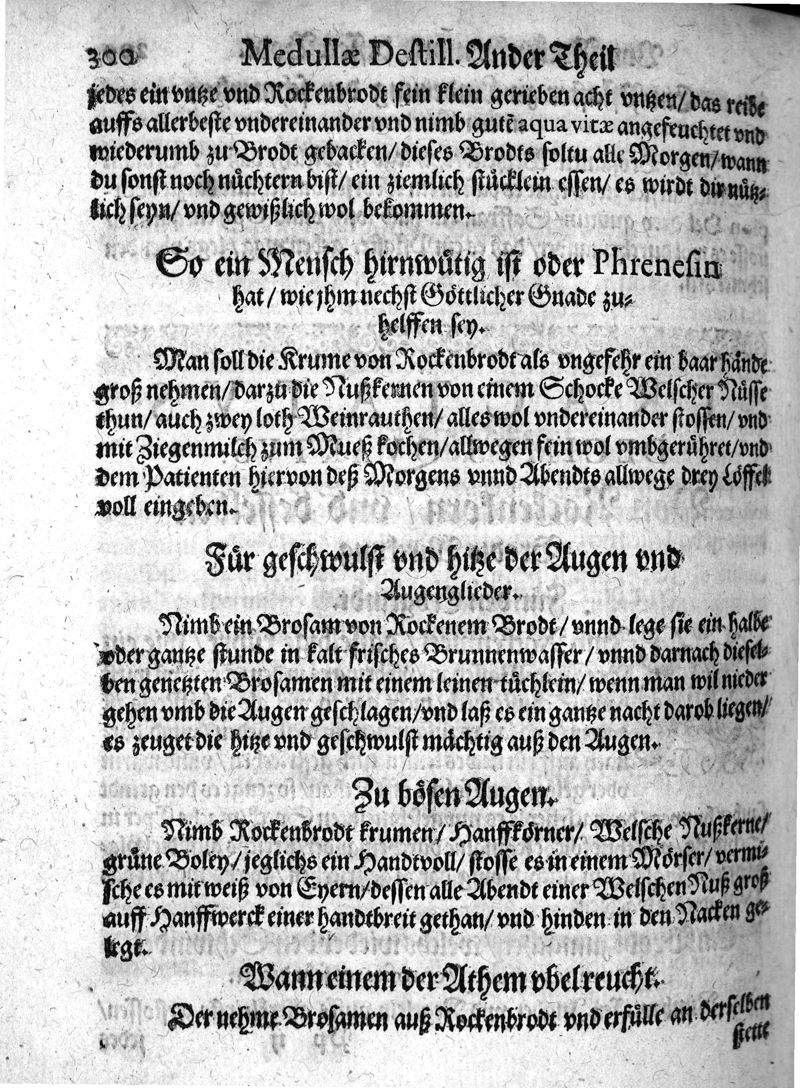 300 Medullæ Destill. Ander Theil
jedes ein vntze vnd Rockenbrodt fein klein gerieben acht vntzen/ das reibe
auffs allerbeste vndereinander vnd nimb gutẽ aqua vitæ angefeuchtet vnd
wiederumb zu Brodt gebacken/ dieses Brodts soltu alle Morgen/ wann
du sonst noch nüchtern bist/ ein ziemlich stücklein essen/ es wirdt dir nütz-
lich seyn/ vnd gewißlich wol bekommen.
So ein Mensch hirnwütig ist oder Phrenesin
hat/ wie jhm nechst Göttlicher Gnade zu-
helffen sey.
Man soll die Krume von Rockenbrodt als vngefehr ein baar hände
groß nehmen/ darzu die Nußkernen von einem Schocke Welscher Nüsse
thun/ auch zwey loth Weinrauthen/ alles wol vndereinander stossen/ vnd
mit Ziegenmilch zum Mueß kochen/ allwegen fein wol vmbgerühret/ vnd
dem Patienten hiervon deß Morgens vnnd Abendts allwege drey Löffel
voll eingeben.
Für geschwulst vnd hitze der Augen vnd
Augenglieder.
Nimb ein Brosam von Rockenem Brodt/ vnnd lege sie ein halbe
oder gantze stunde in kalt frisches Brunnenwasser/ vnnd darnach diesel-
ben genetzten Brosamen mit einem leinen tüchlein/ wenn man wil nieder
gehen vmb die Augen geschlagen/ vnd laß es ein gantze nacht darob liegen/
es zeuget die hitze vnd geschwulst mächtig auß den Augen.
Zu bösen Augen.
Nimb Rockenbrodt krumen/ Hanffkörner/ Welsche Nußkerne/
grüne Boley/ jeglichs ein Handtvoll/ stosse es in einem Mörser/ vermi-
sche es mit weiß von Eyern/ dessen alle Abendt einer Welschen Nuß groß
auff Hanffwerck einer handtbreit gethan/ vnd hinden in den Nacken ge-
legt.
Wann einem der Athem vbel reucht.
Der nehme Brosamen auß Rockenbrodt vnd erfülle an derselben
stette